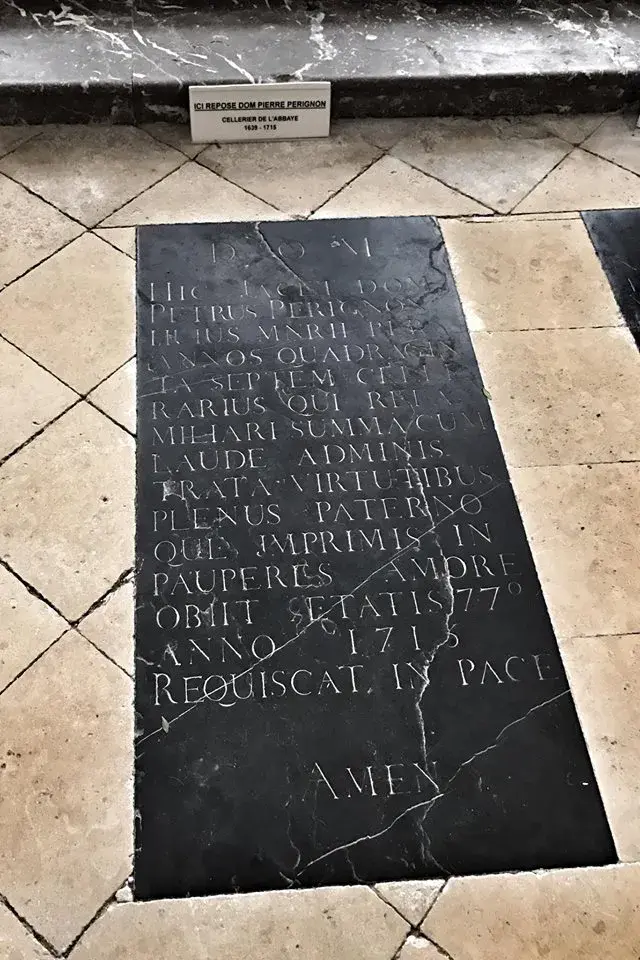 ICI REPOSE DOM PIERRE PERIGNON
CELLERIER DE L'ABBAYE
1639 - 1715
D O M
HIC JACET DOM
PETRUS PERIGNON
HUIUS MNRII PER
ANNOS QUADRAGIN
TA SEPTEM CELLE
RARIUS QUI RE FA
MILIARI SUMMA CUM
LAUDE ADMINIS
TRATA VIRTUTIBUS
PLENUS PATERNO
QUE IMPRIMIS IN
PAUPERES AMORE
OBIIT ÆTATIS 77°
ANNO 1715
REQUISCAT IN PACE
AMEN